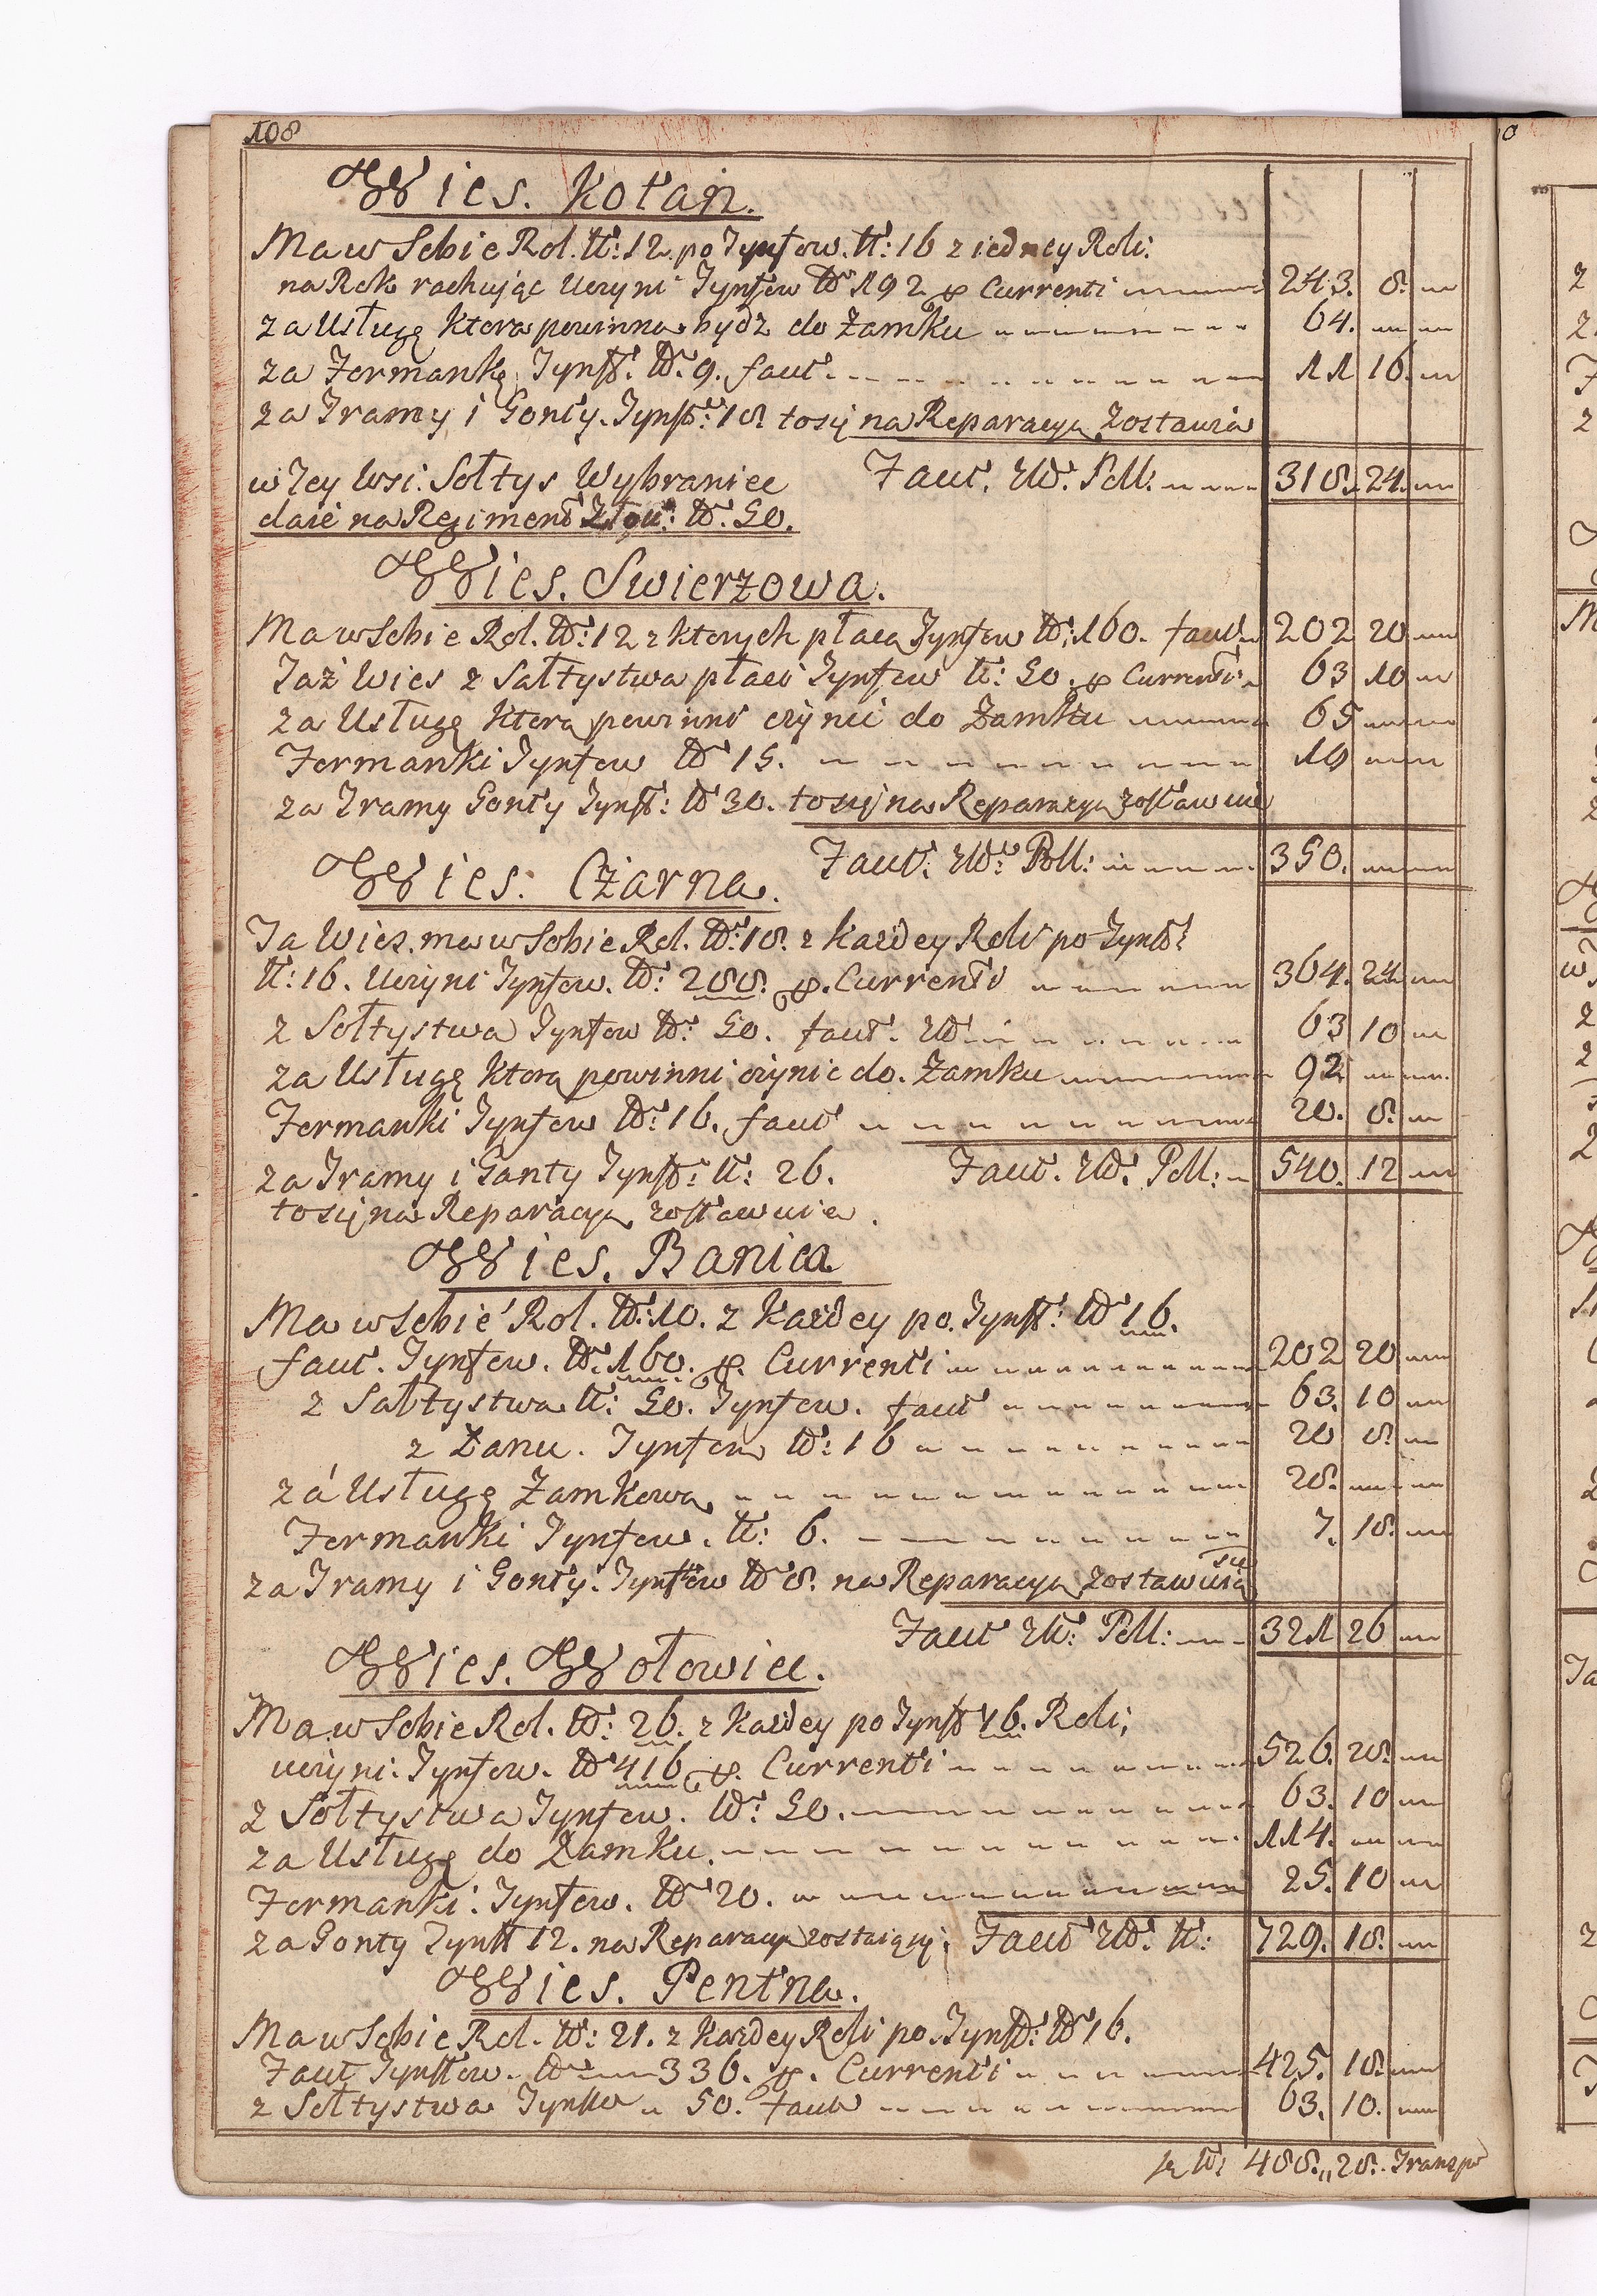 108
Wies. Kotań.
Ma w Sobie Rol. Nr: 12. po Tynfow. Nr: 16 z iedney Roli:
na Rok rachuiąc Uczyni Tynfow Nr 192 Currenti 243. 8.
za Usługę ktora powinna bydz do Zamku 64.
za Formankę Tynff. Nr. 9. facit. 11 16.
za Tramy i Gonty. Tynff: 18 to się na Reparacyą Zostawia
w Tey Wsi: Sołtys Wybraniec Facit. Poll. 318. 24.
daie na Regiment Złou: Nr. 50.
Wies. Swierzowa.
Ma w Sobie Rol. Nr: 12 z ktorych płacą Tynfow Nr: 160. facit 202 20
Taż Wies z Sałtystwa płaci Tynfow Nr: 50. Currenti 63 10
za Usługę ktorą powinni czynić do Zamku 65
Formanki Tynfow Nr 15. 19
za Tramy Gonty Tynff: Nr 30. to się na Reparacyą zostawuie
Facit: Poll: 350.
Wies. Czarna.
Ta Wies. ma w Sobie Rol. Nr: 18. z każdey Roli po Tynff:
Nr: 16. Uczyni Tynfow. Nr: 288. Currenti 364. 24
z Sołtystwa Tynfow Nr: 50. facit. 63 10
za Usługę ktorą powinni czynic do. Zamku 92
Formanki Tynfow Nr: 16. facit 20. 8.
za Tramy i Ganty Tynff: Nr: 26. Facit. Poll: 540. 12
to się na Reparacyą zostawuie.
Wies. Banica.
Ma w Sobie Rol. Nr: 10. z każdey po. Tynff: Nr 16.
facit. Tynfow. Nr. 160. Currenti 202 20
z Sałtystwa Nr: 50. Tynfow. facit 63. 10
z Łanu. Tynfow Nr: 16 20 8
zá Usługę Zamkową 28.
Formanki Tynfow. Nr: 6. 7. 18.
za Tramy i Gonty. Tynffow Nr 8. na Reparacyą Zostawuią się
Facit Poll: 321 26
Wies. Wołowiec.
Ma w Sobie Rol. Nr: 26. z każdey po Tynff 16. Roli;
uczyni. Tynfow. Nr 416 Currenti 526. 28.
z Sołtystwa Tynfow. Nr: 50. 63. 10
za Usługę do Zamku. 114.
Formanki. Tynfow. Nr 20. 25. 10
za Gonty Tynff 12. na Reparacyą zostaiący. Facit 729. 18.
Wies. Pentna.
Ma w Sobie Rol. Nr: 21. z każdey Roli po. Tynff: Nr 16.
Facit Tynffow. Nr 336. Currenti 425. 18.
z Sołtystwa Tynffow 50. facit 63. 10.
488. 28. Transp